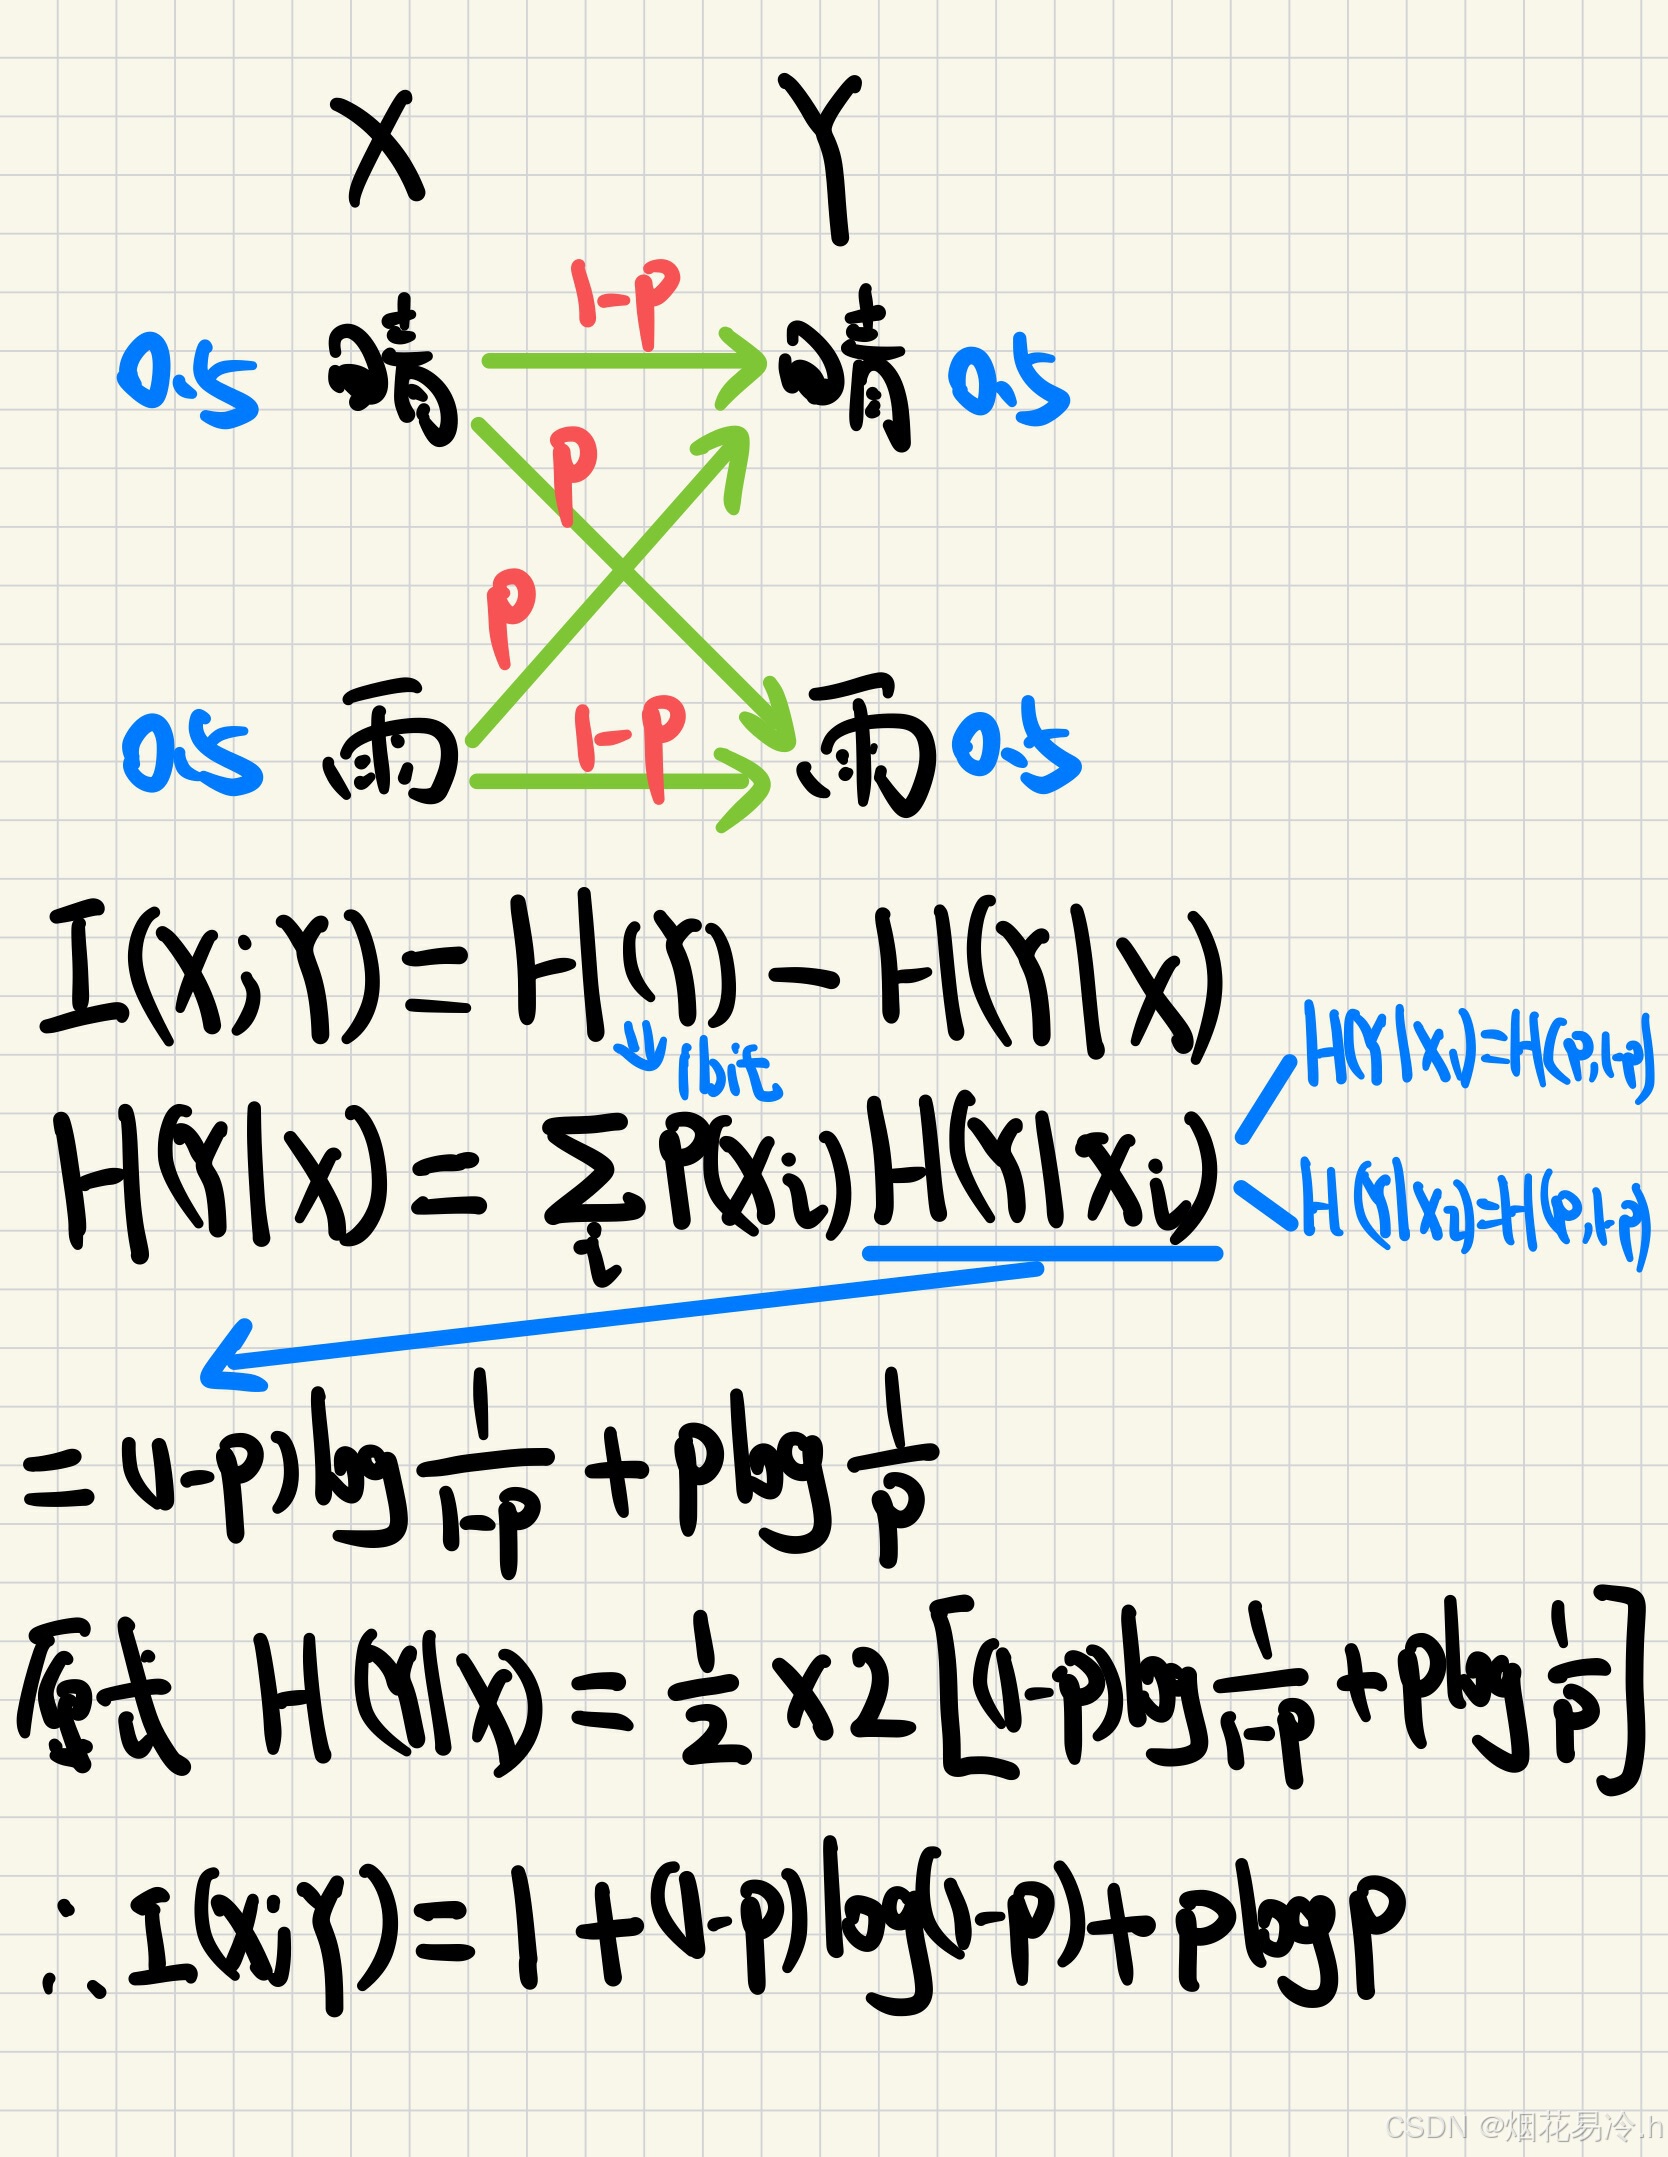 X Y
1-p
0.5 晴 晴 0.5
p
p
1-p
0.5 雨 雨 0.5
I(X;Y)=H(Y)-H(Y|X)
1bit
H(Y|X₁)=H(p,1-p)
H(Y|X)=∑ᵢP(Xᵢ)H(Y|Xᵢ)
H(Y|X₂)=H(p,1-p)
=(1-p)log 1/(1-p) + plog 1/p
原式 H(Y|X)=1/2×2[(1-p)log 1/(1-p) + plog 1/p]
∴I(X;Y)=1+(1-p)log(1-p)+plogp
CSDN @烟花易冷.h